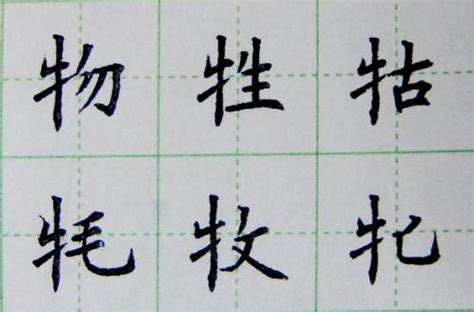 物 牲 牯
牦 牧 牝